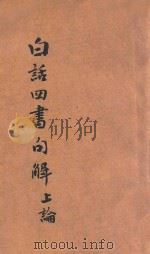 白話四書句解上論
mtoou.info